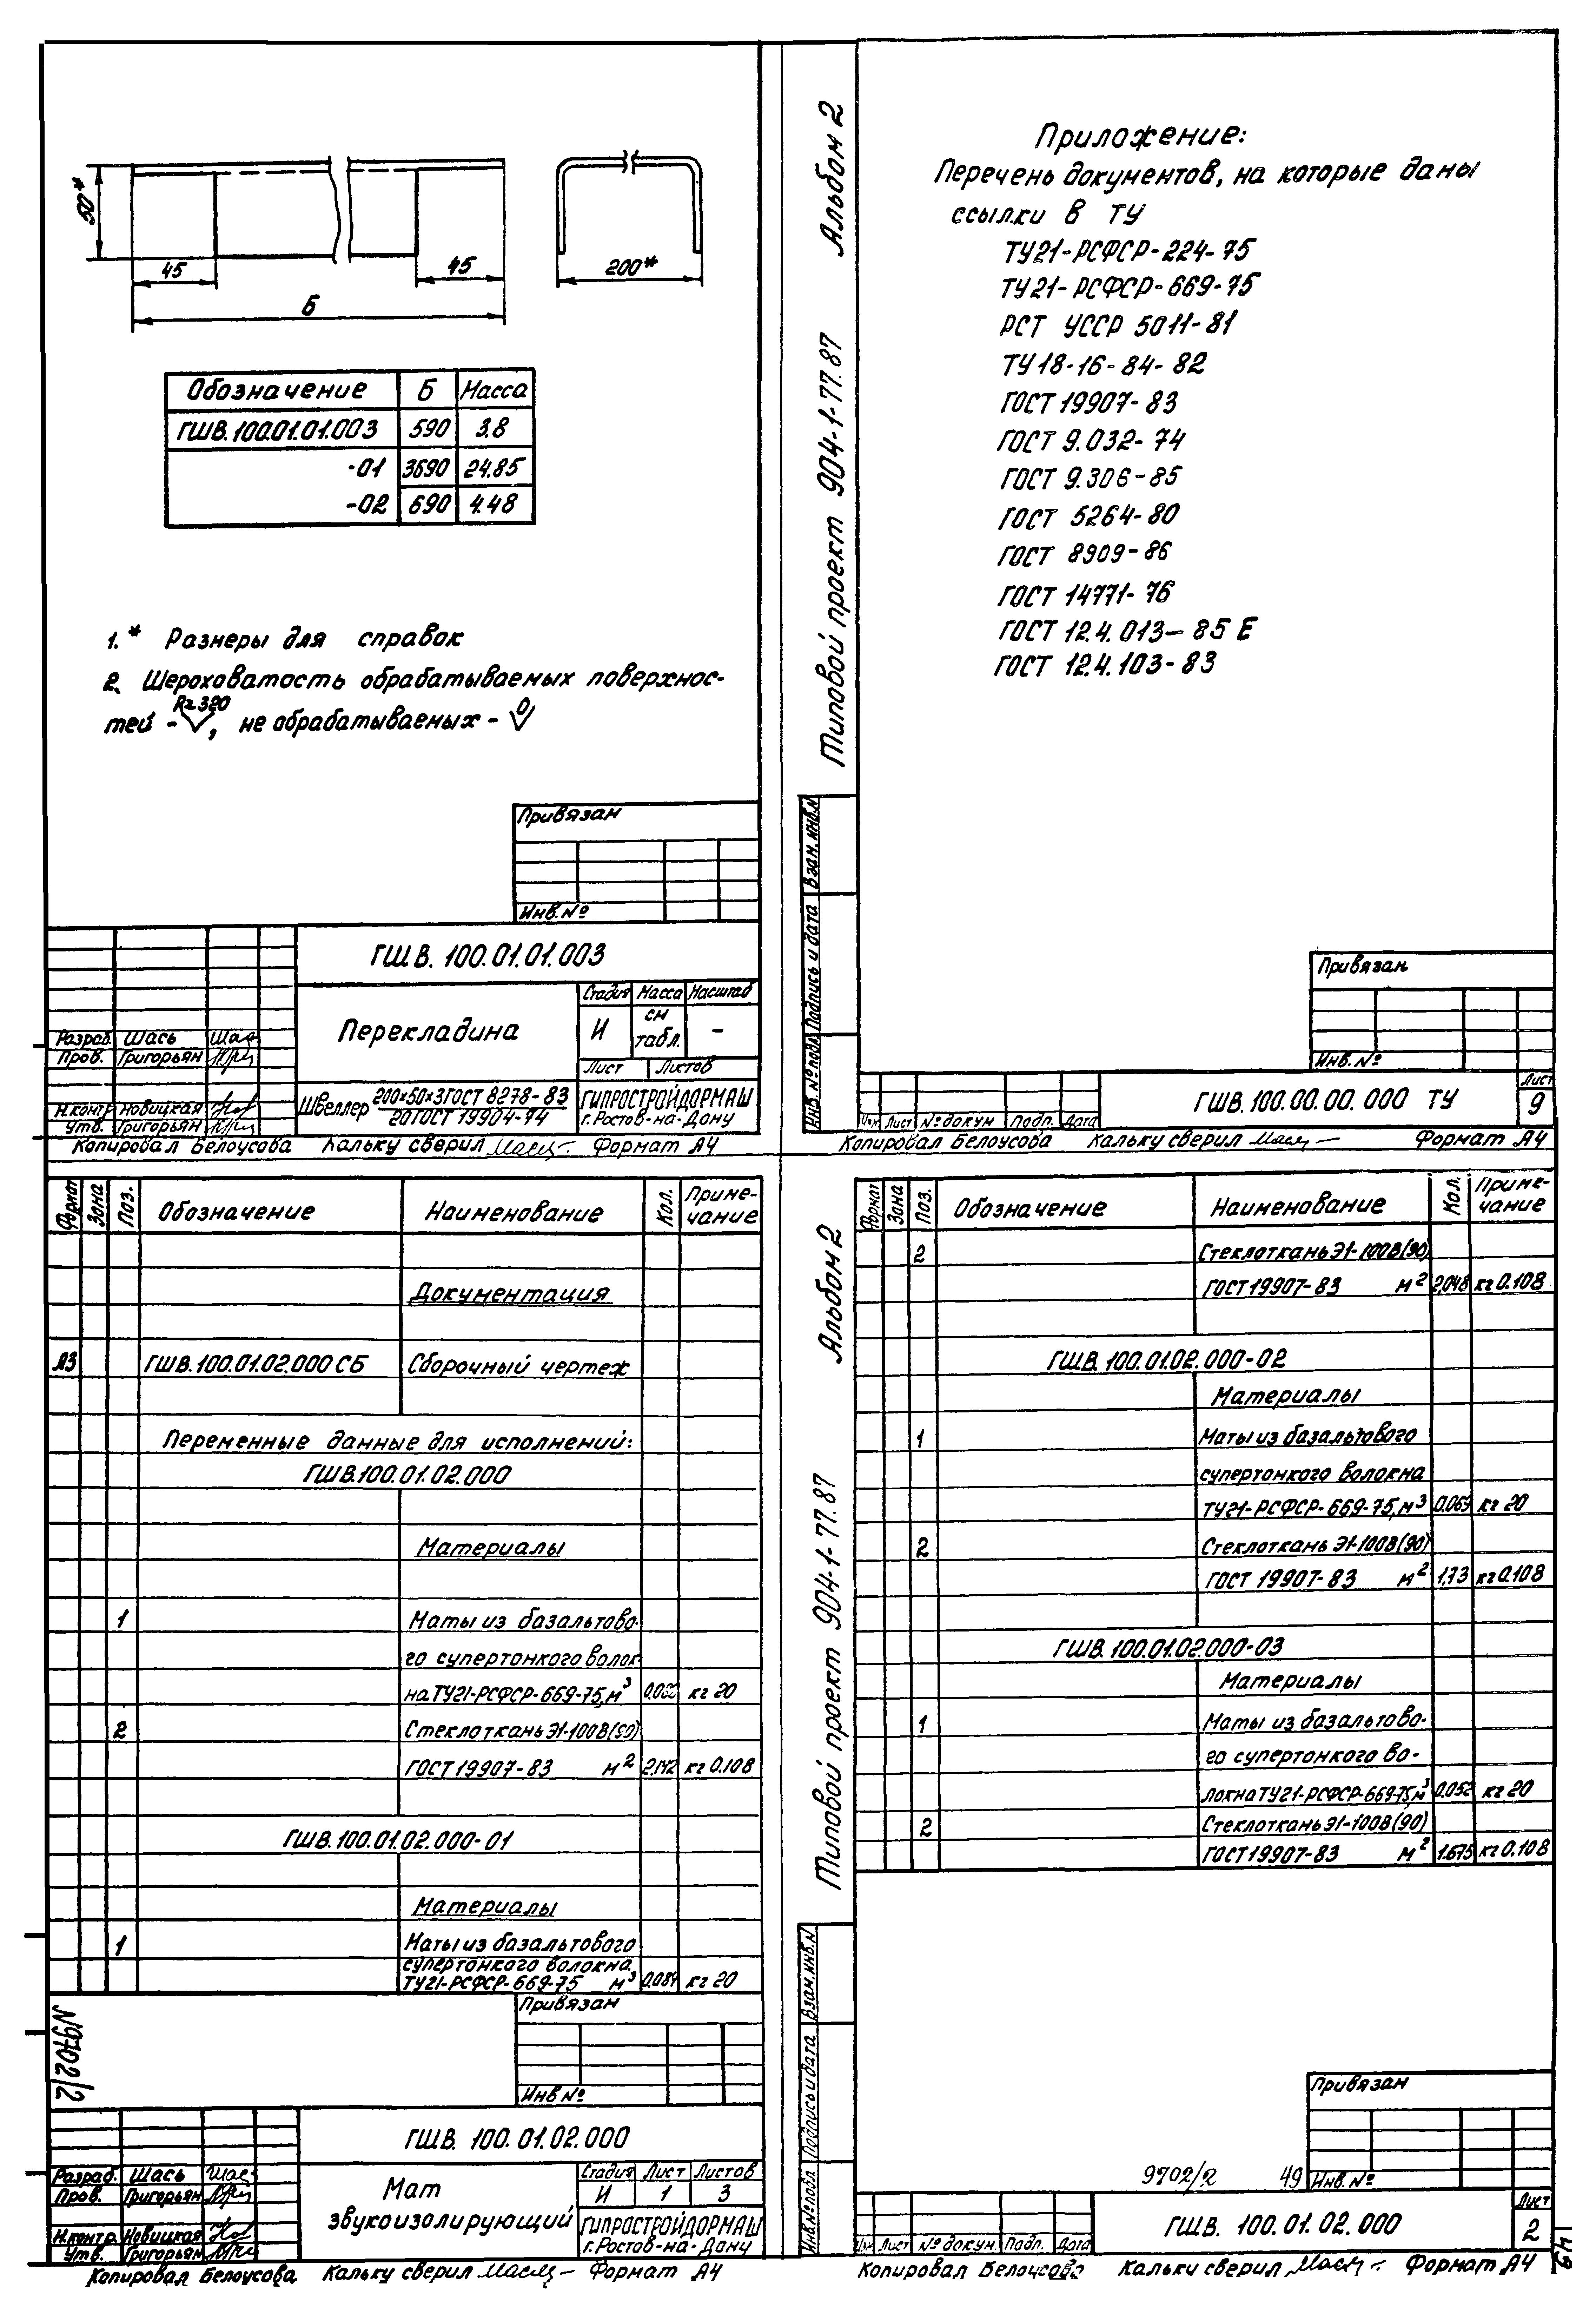 50*
45
45
Б
200*
Обозначение Б Масса
ГШВ.100.01.01.003 590 3.8
-01 3690 24.85
-02 690 4.48
1.* Размеры для справок
2. Шероховатость обрабатываемых поверхнос-
Rz 320
тей - , не обрабатываемых -
Привязан
Инв.№
ГШВ. 100.01.01.003
Перекладина
Стадия Масса Масштаб
И см табл. -
Лист Листов
Разраб. Шась
Пров. Григорьян
Н.контр Новицкая
Утв. Григорьян
Швеллер 200×50×3 ГОСТ 8278-83
20 ГОСТ 19904-74
ГИПРОСТРОЙДОРМАШ
г.Ростов-на-Дону
Копировал Белоусова Кальку сверил Формат А4
Альбом 2
Типовой проект 904-1-77.87
Приложение:
Перечень документов, на которые даны
ссылки в ТУ
ТУ21-РСФСР-224-75
ТУ21-РСФСР-669-75
РСТ УССР 5011-81
ТУ18-16-84-82
ГОСТ 19907-83
ГОСТ 9.032-74
ГОСТ 9.306-85
ГОСТ 5264-80
ГОСТ 8909-86
ГОСТ 14771-76
ГОСТ 12.4.013-85 Е
ГОСТ 12.4.103-83
Взам.инв.№
Подпись и дата
Инв.№ подл
Привязан
Инв.№
Изм Лист № докум Подп. Дата
ГШВ.100.00.00.000 ТУ
Лист
9
Копировал Белоусова Кальку сверил Формат А4
Формат Зона Поз. Обозначение Наименование Кол. Приме-
чание
Документация
А3 ГШВ.100.01.02.000 СБ Сборочный чертеж
Переменные данные для исполнений:
ГШВ.100.01.02.000
Материалы
1 Маты из базальтово-
го супертонкого волок-
на ТУ21-РСФСР-669-75, м3 кг 20
2 Стеклоткань Э1-100В(90)
ГОСТ 19907-83 м2 2.142 кг 0.108
ГШВ.100.01.02.000-01
Материалы
1 Маты из базальтового
супертонкого волокна
ТУ21-РСФСР-669-75 м3 0.084 кг 20
Привязан
Инв №
№9702/2
ГШВ. 100.01.02.000
Разраб. Шась
Пров. Григорьян
Н.контр Новицкая
Утв. Григорьян
Мат
звукоизолирующий
Стадия Лист Листов
И 1 3
ГИПРОСТРОЙДОРМАШ
г.Ростов-на-Дону
Копировал Белоусова Кальку сверил Формат А4
Альбом 2
Типовой проект 904-1-77.87
Формат Зона Поз. Обозначение Наименование Кол. Приме-
чание
2 Стеклоткань Э1-100В(90)
ГОСТ 19907-83 м2 2,048 кг 0.108
ГШВ.100.01.02.000-02
Материалы
1 Маты из базальтового
супертонкого волокна
ТУ21-РСФСР-669-75, м3 0.069 кг 20
2 Стеклоткань Э1-100В(90)
ГОСТ 19907-83 м2 1,73 кг 0.108
ГШВ.100.01.02.000-03
Материалы
1 Маты из базальтово-
го супертонкого во-
локна ТУ21-РСФСР-669-75, м3 0.052 кг 20
2 Стеклоткань Э1-100В(90)
ГОСТ 19907-83 м2 1.675 кг 0.108
Взам.инв.№
Подпись и дата
Инв.№ подл
Привязан
9702/2 49 Инв.№
Изм Лист № докум. Подп. Дата
ГШВ. 100.01.02.000
Лист
2
Копировал Белоусова Кальку сверил Формат А4
49